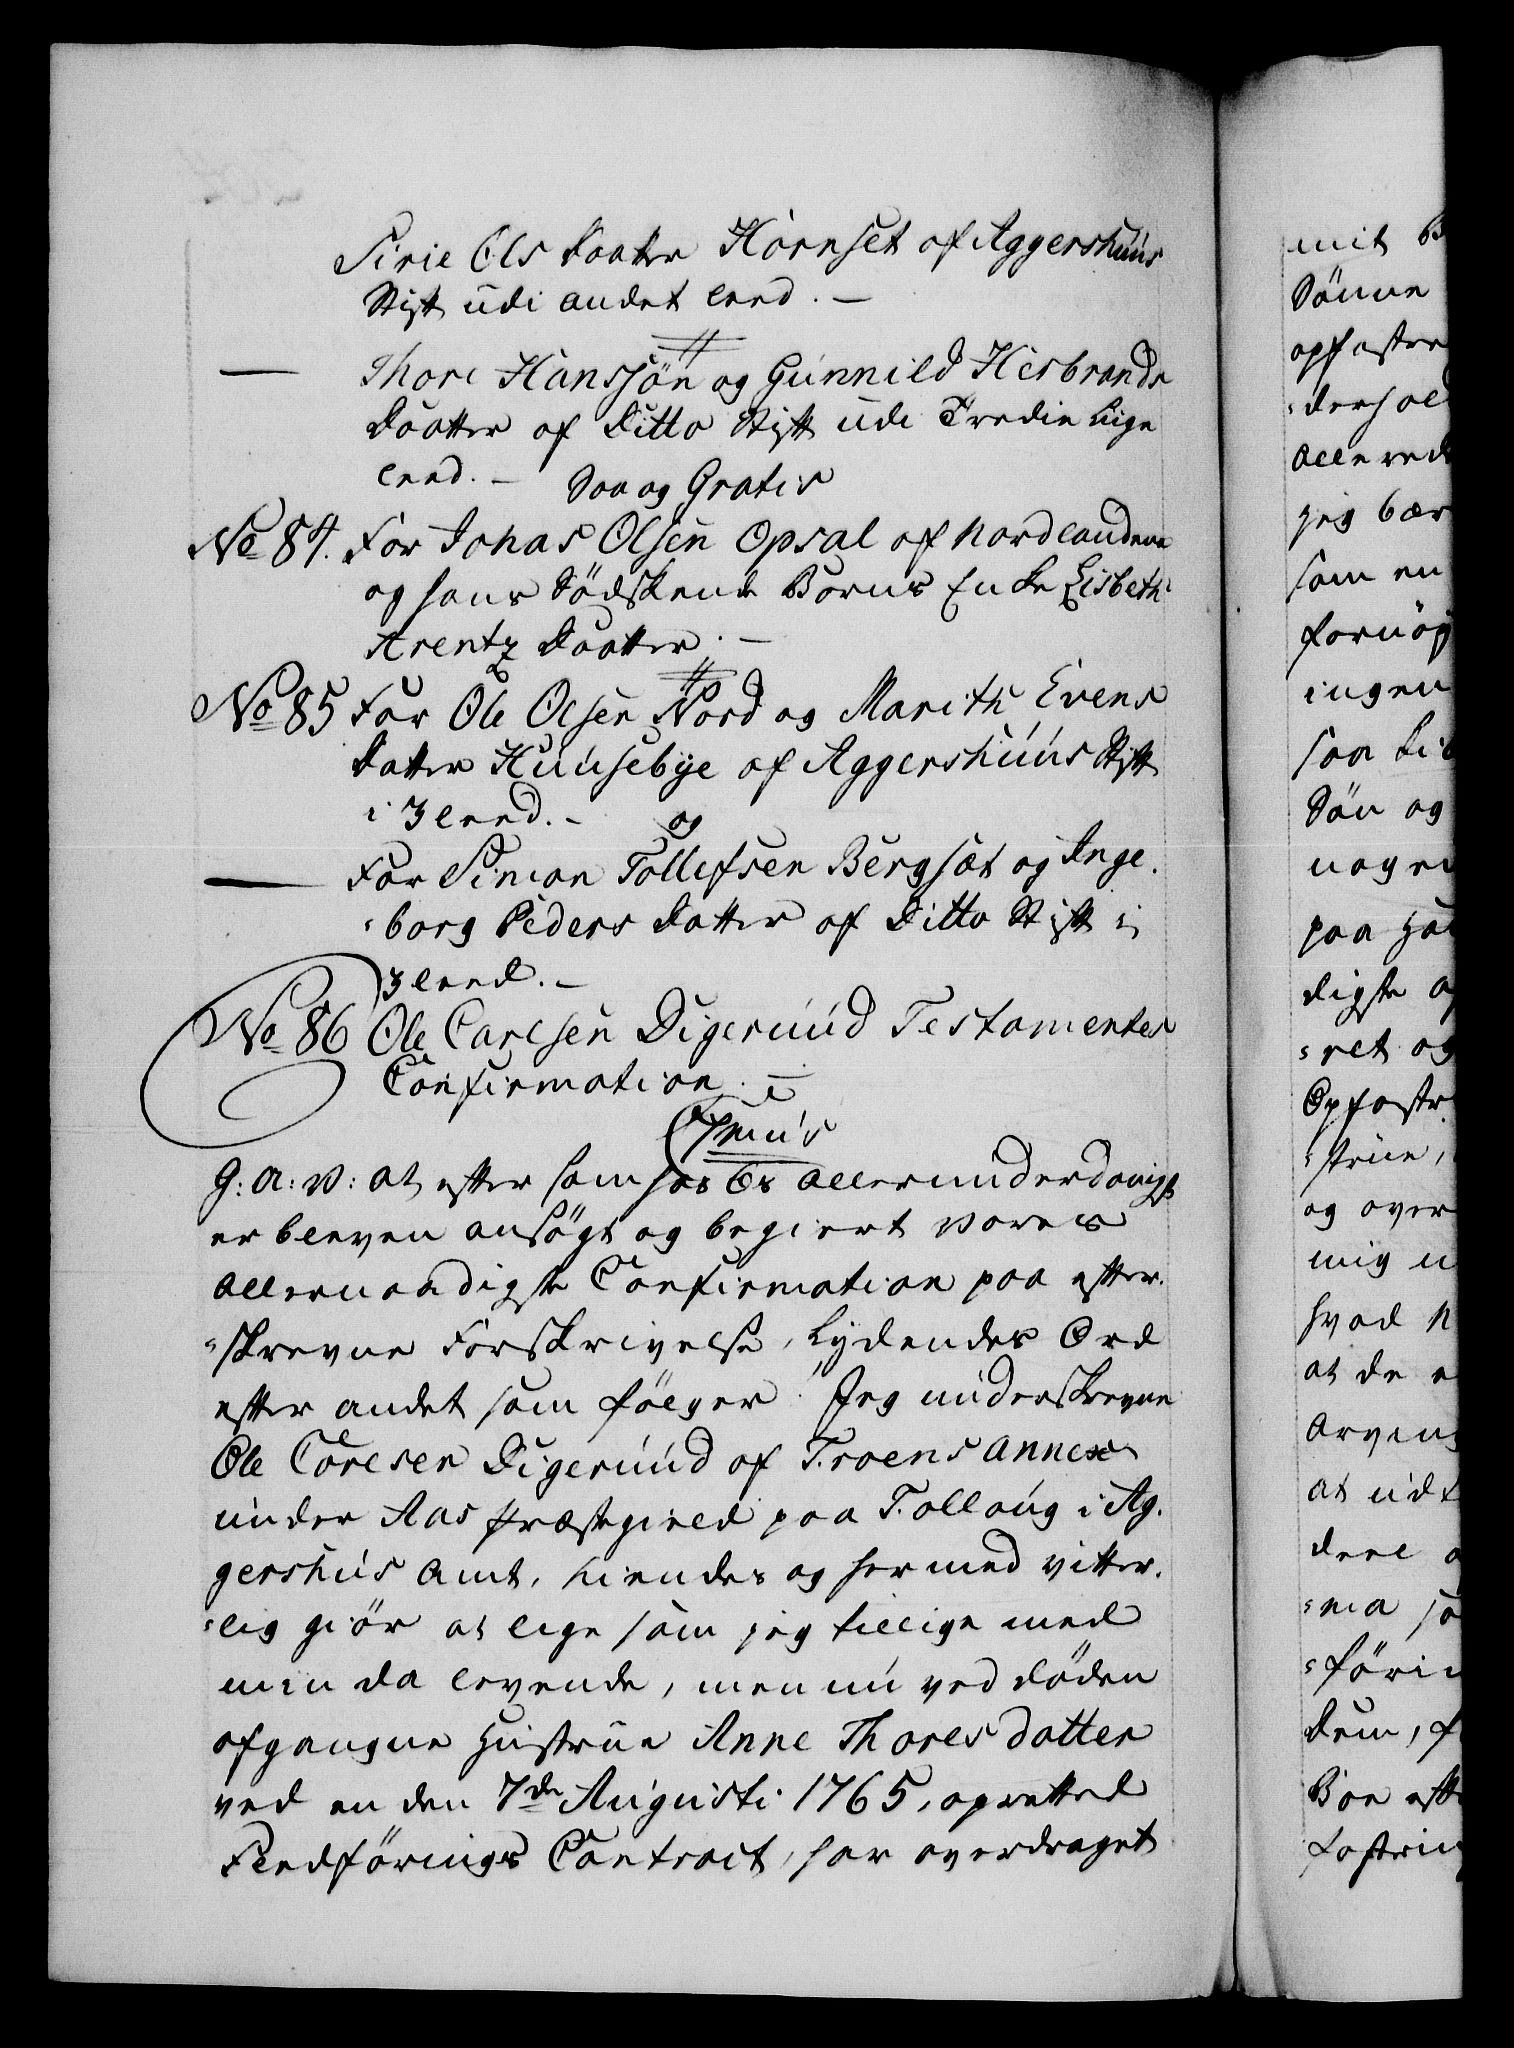 Sirie Ols Daatter Hornset af Aggershuus
Stift udi andet Leed. —
— Thore Hanssön og Gunnild Hesbrands
Daatter af Ditto Stift udi Tredie Liige
Leed. — Saa og Gratis
No 84. For Johas Olsen Opsal af Nordlandene
og hans Södskende Barns Enke Lisbeth
Arentz Daatter. —
No 85 For Ole Olsen Nord og Marith Evens
Datter Huusebye af Aggershuus Stift
i 3 Leed. — og
— For Simon Tollefsen Bergsæt og Inge-
-borg Peders Datter af Ditto Stift i
3 Leed. —
No 86 Ole Carlsen Digerund Testamentes
Confirmation. —
G: A: V: at efter som hos Os allerunderdanigst
er bleven ansögt og begiert Vores
allernaadigste Confirmation paa efter-
-skrevne Forskrivelse, Lydendes Ord
efter andet som fölger. Jeg underskrevne
Ole Carlsen Digerund af Troens Annex
under Aas Præstegield paa Tollang i Ag-
gershus Amt, kiendes og hermed vitter-
-lig giör at lige som jeg tillige med
min da levende, men nu ved döden
afgangne Hustrue Anne Thoresdatter
ved en den 7de Augusti 1765, opretted
Fledförings Contract, har overdraget
mit B
Sönne
opfostre
-derhol
alle red
jeg bær
som en
fornöy
ingen
saa li
Sön og
noge
paa Ho
digste a
-ret og
Opfostr
-strue,
og over
mig u
hvad N
at de e
Arving
at udt
deel a
-ma so
-föri
dem, f
Boe eft
fostrin